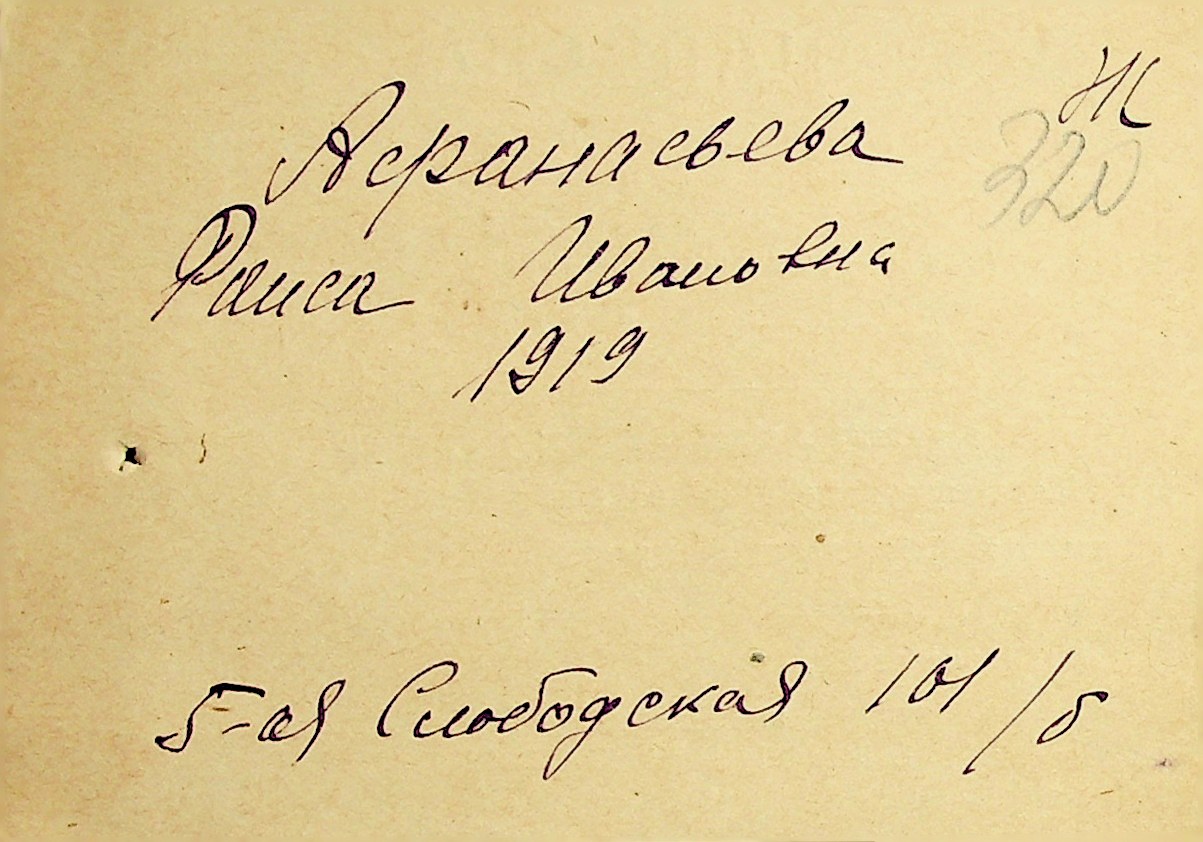 Ж
320
Афанасьева
Раиса Ивановна
1919
5-ая Слободская 101/б